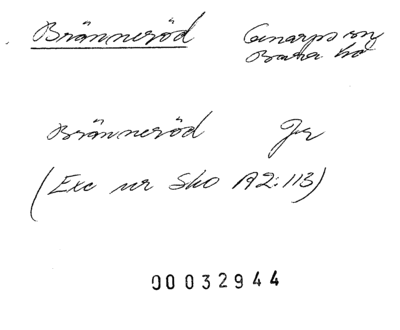 Bränneröd Genarps sn
Bara hd
Bränneröd Jr
(Exc ur Sko A2:113)
00032944